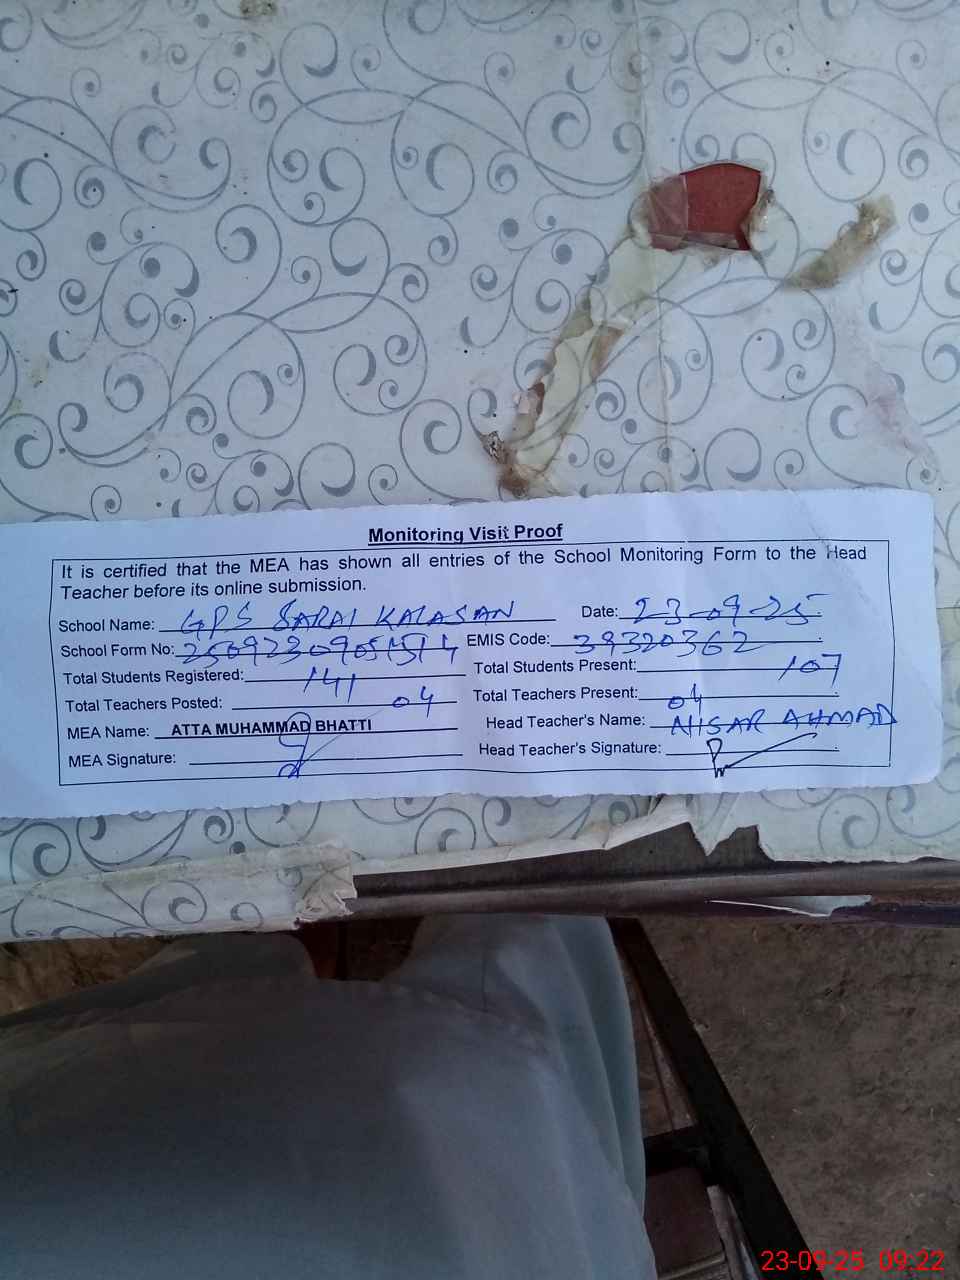 Monitoring Visit Proof
It is certified that the MEA has shown all entries of the School Monitoring Form to the Head
Teacher before its online submission.
School Name: GPS SARAI KALASAN Date: 23-09-25
School Form No: EMIS Code: 39320362
Total Students Registered: 141 Total Students Present: 107
Total Teachers Posted: 04 Total Teachers Present: 04
MEA Name: ATTA MUHAMMAD BHATTI Head Teacher's Name: NISAR AHMAD
MEA Signature: Head Teacher's Signature:
23-09-25 09:22